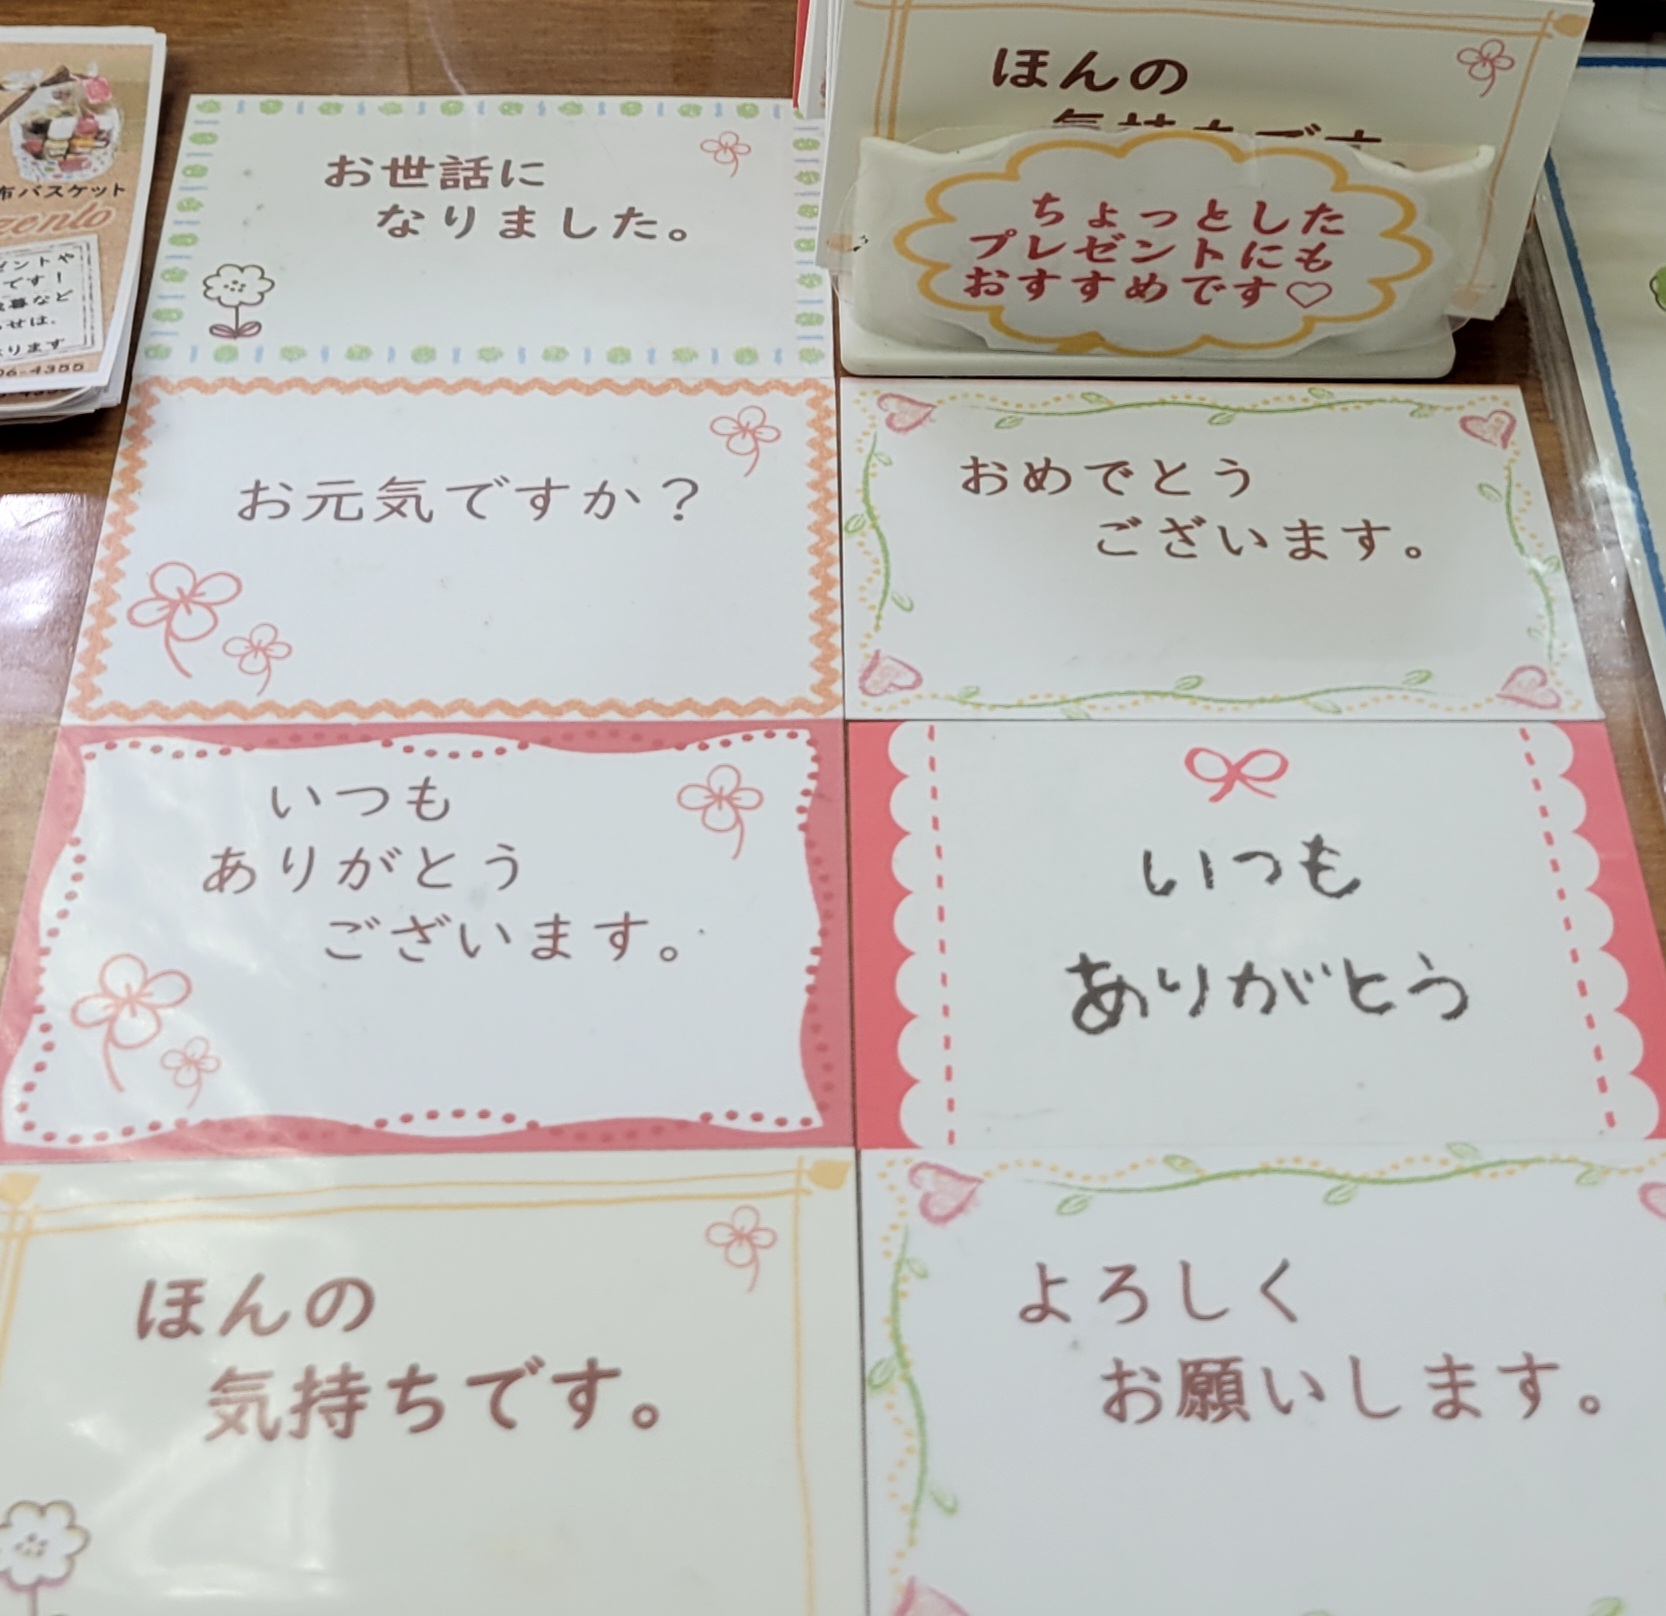 布バスケット
ゼントや
です！
暮など
せは、
ります
06-4355
お世話に
なりました。
ほんの
気持ちです。
ちょっとした
プレゼントにも
おすすめです♡
お元気ですか？
おめでとう
ございます。
いつも
ありがとう
ございます。
いつも
ありがとう
ほんの
気持ちです。
よろしく
お願いします。